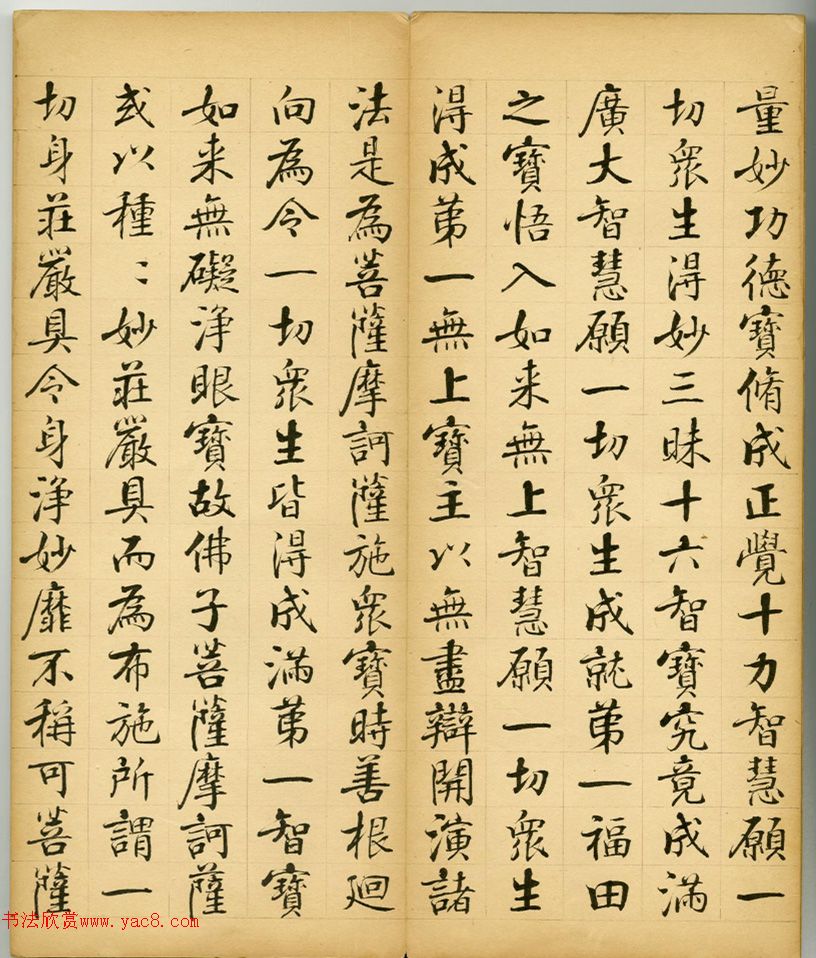 量妙功德寶脩成正覺十力智慧願一
切衆生得妙三昧十六智寶究竟成滿
廣大智慧願一切衆生成就第一福田
之寶悟入如来無上智慧願一切衆生
得成第一無上寶主以無盡辯開演諸
法是為菩薩摩訶薩施衆寶時善根廻
向為令一切衆生皆得成滿第一智寶
如来無礙淨眼寶故佛子菩薩摩訶薩
或以種〻妙莊嚴具而為布施所謂一
切身莊嚴具令身淨妙靡不稱可菩薩
书法欣赏www.yac8.com